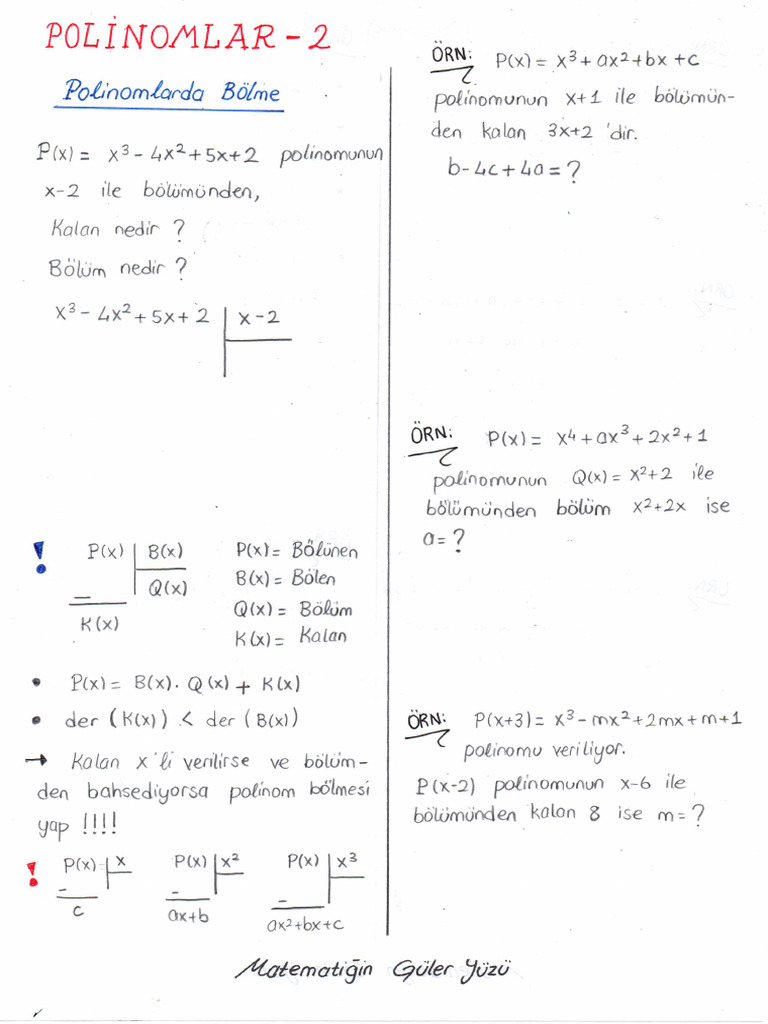 POLİNOMLAR - 2
Polinomlarda Bölme
P(x) = x³ - 4x² + 5x + 2 polinomunun
x-2 ile bölümünden,
Kalan nedir ?
Bölüm nedir ?
x³ - 4x² + 5x + 2 | x - 2
! P(x) | B(x)
Q(x)
K(x)
P(x) = Bölünen
B(x) = Bölen
Q(x) = Bölüm
K(x) = Kalan
• P(x) = B(x) . Q(x) + K(x)
• der (K(x)) < der (B(x))
→ Kalan x'li verilirse ve bölüm-
den bahsediyorsa polinom bölmesi
yap !!!!
! P(x) | x P(x) | x² P(x) | x³
c ax+b ax²+bx+c
ÖRN: P(x) = x³ + ax² + bx + c
polinomunun x+1 ile bölümün-
den kalan 3x+2 'dir.
b - 4c + 4a = ?
ÖRN: P(x) = x⁴ + ax³ + 2x² + 1
polinomunun Q(x) = x²+2 ile
bölümünden bölüm x²+2x ise
a = ?
ÖRN: P(x+3) = x³ - mx² + 2mx + m + 1
polinomu veriliyor.
P(x-2) polinomunun x-6 ile
bölümünden kalan 8 ise m = ?
Matematiğin Güler Yüzü